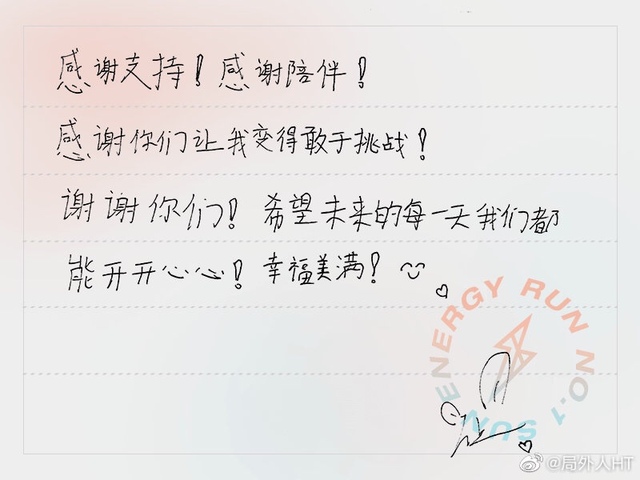 感谢支持！感谢陪伴！
感谢你们让我变得敢于挑战！
谢谢你们！希望未来的每一天我们都
能开开心心！幸福美满！
ENERGY RUN NO.1 SUN
@局外人HT